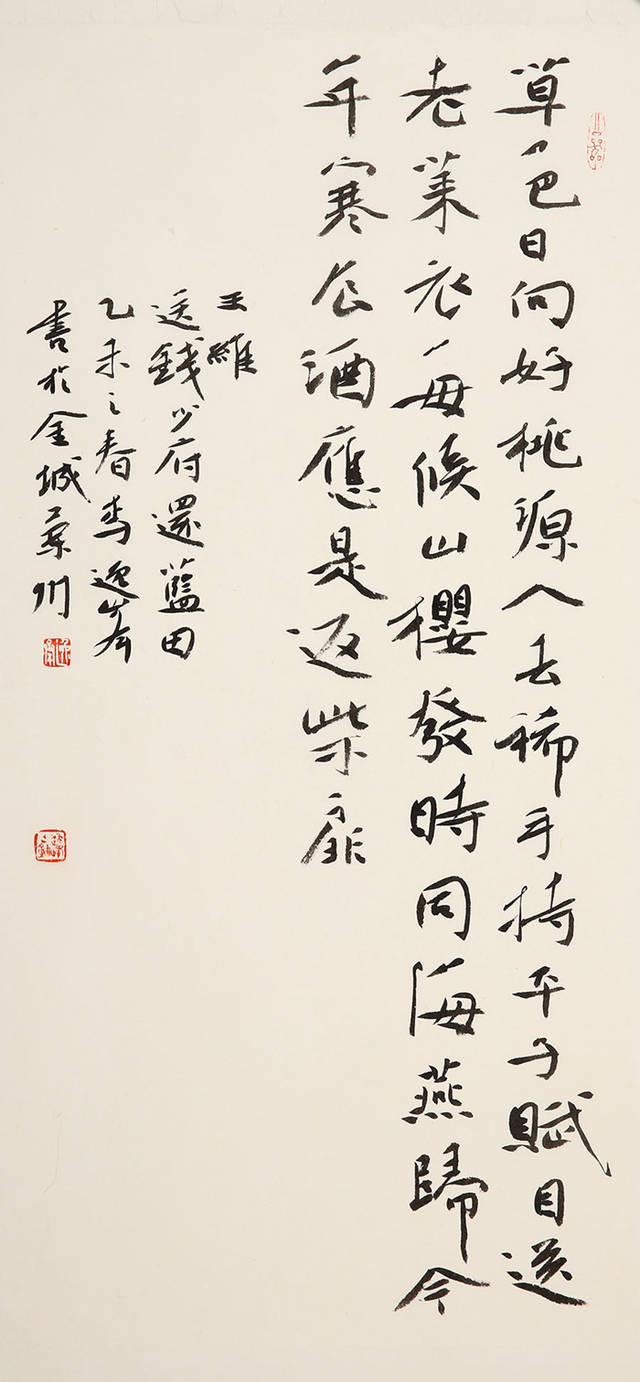 草色日向好桃源人去稀手持平子賦目送
老萊衣每候山櫻發時同海燕歸今
年寒食酒應是返柴扉
王維
送錢少府還藍田
乙未之春李逸峯
書於金城蘭州